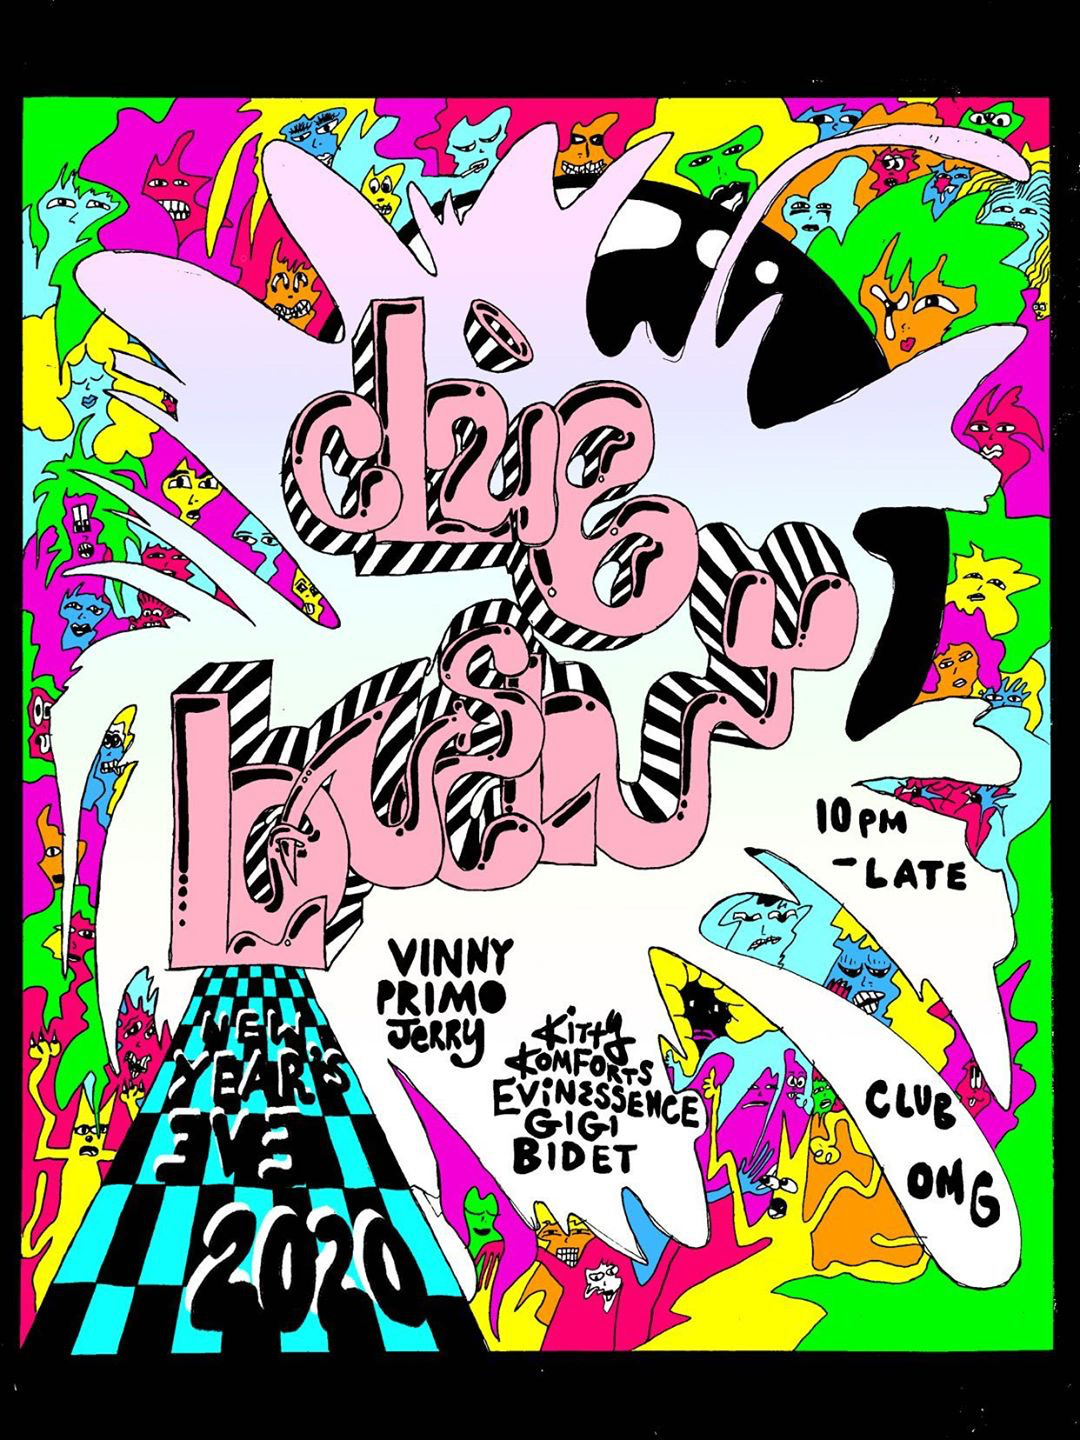 10PM
-LATE
VINNY
PRIMO
JERRY
KITTY
KOMFORTS
EVINESSENCE
GIGI
BIDET
CLUB
OMG
NEW
YEAR'S
EVE
2020